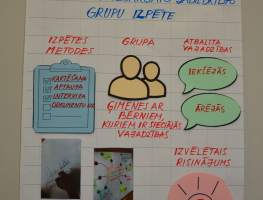 GRUPU IZPĒTE
IZPĒTES
METODES
KARTĒŠANA
APTAUJA
INTERVIJA
DOKUMENTU
GRUPA
ĢIMENES AR
BĒRNIEM,
KURIEM IR SPECIĀLĀS
VAJADZĪBAS
ATBALSTA
VAJADZĪBAS
IEKŠĒJĀS
ĀRĒJĀS
IZVĒLĒTAIS
RISINĀJUMS